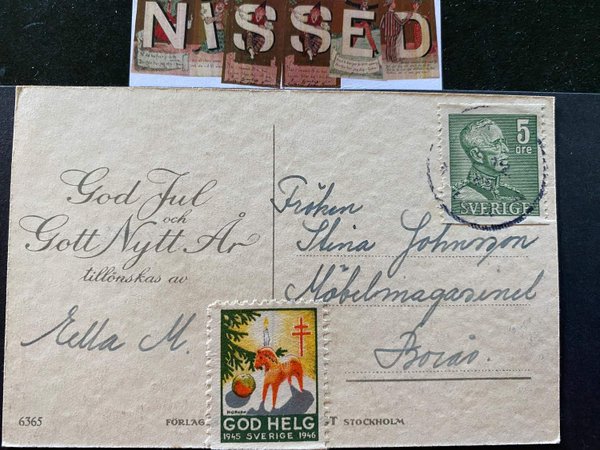 NISSED
God Jul
och
Gott Nytt År
tillönskas av
Ella M.
5
öre
SVERIGE
Fröken
Stina Johnsson
Möbelmagasinet
Borås.
GOD HELG
1945 SVERIGE 1946
6365
FÖRLAG
T STOCKHOLM